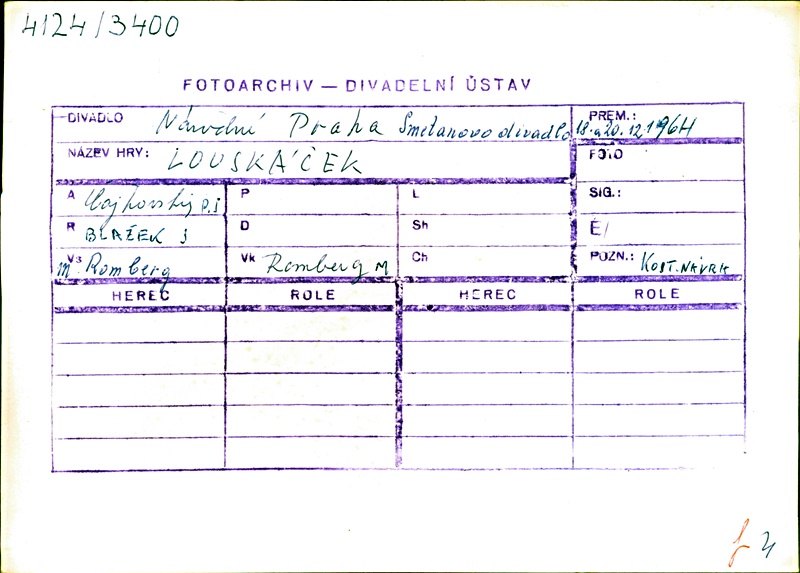 4124/3400
FOTOARCHIV — DIVADELNÍ ÚSTAV
DIVADLO Národní Praha Smetanovo divadlo PREM.: 18. a 20. 12. 1964
NÁZEV HRY: LOUSKÁČEK FOTO
A Čajkovskij P.I P L SIG.:
R BLAŽEK J D Sh Č/
Vs M. Romberg Vk Romberg M Ch POZN.: KOST. NÁVRH
HEREC ROLE HEREC ROLE